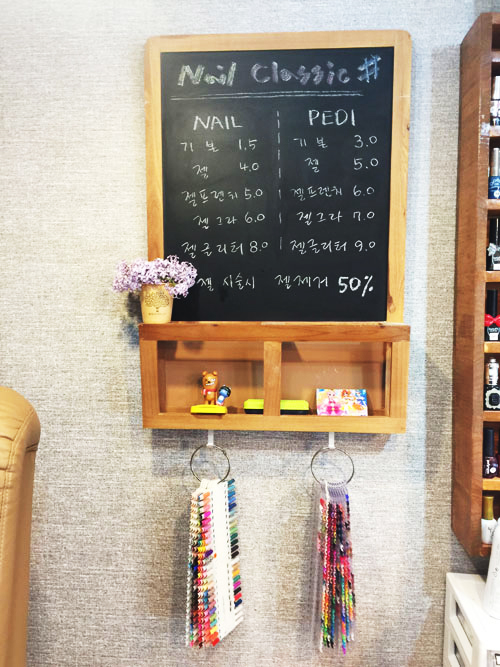 Nail Classic #
NAIL PEDI
기본 1.5 기본 3.0
젤 4.0 젤 5.0
젤프렌치 5.0 젤프렌치 6.0
젤그라 6.0 젤그라 7.0
젤글리터 8.0 젤글리터 9.0
젤 시술시 젤제거 50%